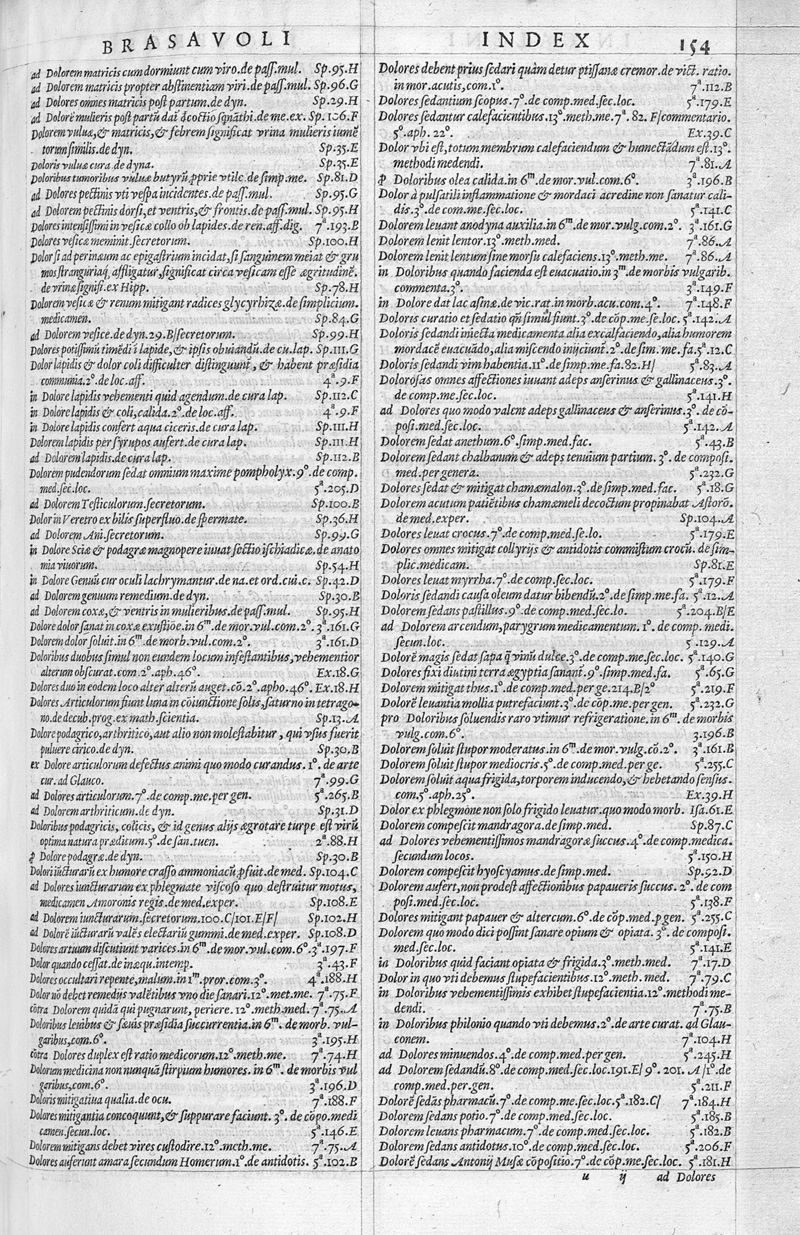 BRASAVOLI
ad Dolorem matricis cum dormiunt cum viro.de pass.mul. Sp.95.H
ad Dolorem matricis propter abstinentiam viri.de pass.mul. Sp.96.G
ad Dolores omnes matricis post partum.de dyn. Sp.29.H
ad Dolorē mulieris post partū dai de me.ex. Sp.106.F
Dolorem vuluæ,& matricis,& febrem significat vrina mulieris iumē
torum similis.de dyn. Sp.35.E
Doloris vuluæ cura.de dyna. Sp.35.E
Doloribus tumoribus vuluæ butyrū vtile.de simp.me. Sp.81.D
ad Dolores pectinis vti vespa incidentes.de pass.mul. Sp.95.G
ad Dolorem pectinis dorsi,et ventris,& frontis.de pass.mul. Sp.95.H
Dolores intensissimi in vesicæ collo ob lapides.de ren.aff.dig. 7ª.193.B
Dolores vesicæ meminit.secretorum. Sp.100.H
Dolor si ad perinæum ac epigastrium incidat,si sanguinem meiat & gru
mos stranguriaq; affligatur,significat circa vesicam esse ægritudinē.
de vrinæ signif.ex Hipp. Sp.78.H
Dolorem vesicæ & renum mitigant radices glycyrhizæ.de simplicium.
medicamen. Sp.84.G
ad Dolorem vesicæ.de dyn.29.B/secretorum. Sp.99.H
Dolores potissimū timēdi i lapide,& ipsis obuiandū.de cu.lap. Sp.111.G
Dolor lapidis & dolor coli difficulter distinguunt, & habent præsidia
communia.2°.de loc.aff. 4ª.9.F
in Dolore lapidis vehementi quid agendum.de cura lap. Sp.112.C
in Dolore lapidis & coli,calida.2°.de loc.aff. 4ª.9.F
in Dolore lapidis confert aqua ciceris.de cura lap. Sp.111.H
Dolorem lapidis per syrupos aufert.de cura lap. Sp.111.H
ad Dolorem lapidis.de cura lap. Sp.112.B
Dolorem pudendorum sedat omnium maxime pompholyx.9°.de comp.
med.sec.loc. 5ª.205.D
ad Dolorem Testiculorum.secretorum. Sp.100.B
Dolor in Veretro ex bilis superfluo.de spermate. Sp.36.H
ad Dolorem Ani.secretorum. Sp.99.G
in Dolore Sciæ & podagræ magnopere iuuat sectio ischiadicæ.de anato
mia viuorum. Sp.54.H
in Dolore Genuū cur oculi lachrymantur.de na.et ord.cui.c. Sp.42.D
ad Dolorem genuum remedium.de dyn. Sp.30.B
ad Dolorem coxæ,& ventris in mulieribus.de pass.mul. Sp.95.H
Dolore dolor sanat in coxæ exustiōe.in 6ᵐ.de mor.vul.com.2°. 3ª.161.G
Dolorem dolor soluit.in 6ᵐ.de morb.vul.com.2°. 3ª.161.D
Doloribus duobus simul non eundem locum infestantibus,vehementior
alterum obscurat.com.2°.aph.46°. Ex.18.G
Dolores duo in eodem loco alter alterū auget.cō.2°.apho.46°. Ex.18.H
Dolores Articulorum fiunt luna in cōiunctione solis,saturno in tetrago-
no.de decub.prog.ex math.scientia. Sp.13.A
Dolore podagrico,arthritico,aut alio non molestabitur, qui vsus fuerit
puluere cirico.de dyn. Sp.30.B
ex Dolore articulorum defectus animi quo modo curandus.1°.de arte
cur.ad Glauco. 7ª.99.G
ad Dolores articulorum.7°.de comp.me.per gen. 5ª.265.B
ad Dolorem arthriticum.de dyn. Sp.31.D
Doloribus podagricis, colicis, & id genus alijs ægrotare turpe est virū
optima natura præditum.5°.de san.tuen. 2ª.88.H
Dolore podagræ.de dyn. Sp.30.B
Dolori iūcturarū ex humore crasso ammoniacū de med. Sp.104.C
ad Dolores iuncturarum ex phlegmate viscoso quo destruitur motus,
medicamen Amoronis regis.de med.exper. Sp.108.E
ad Dolorem iuncturarum.secretorum.100.C/101.E/F/ Sp.102.H
ad Dolorē iūcturarū valēs electariū gummi.de med.exper. Sp.108.D
Dolores artuum discutiunt varices.in 6ᵐ.de mor.vul.com.6°. 3ª.197.F
Dolor quando cessat.de inæqu.intemp. 3ª.43.F
Dolores occultari repente,malum.in 1ᵐ.pror.com.3°. 4ª.188.H
Dolor nō debet remedijs valētibus vno die sanari.12°.met.me. 7ª.75.F
cōtra Dolorem quidā qui pugnarunt, periere. 12°.meth.med. 7ª.75.A
Doloribus leuibus & sæuis præsidia succurrentia.in 6ᵐ. de morb. vul-
garibus,com.6°. 3ª.195.H
cōtra Dolores duplex est ratio medicorum.12°.meth.me. 7ª.74.H
Dolorum medicina non nunquā stirpium humores. in 6ᵐ. de morbis vul
garibus,com.6°. 3ª.196.D
Doloris mitigatiua qualia.de ocu. 7ª.188.F
Dolores mitigantia concoquunt,& suppurare faciunt. 3°. de cōpo.medi
camen.secun.loc. 5ª.146.E
Dolorem mitigans debet vires custodire.12°.meth.me. 7ª.75.A
Dolores auferunt amara secundum Homerum.1°.de antidotis. 5ª.102.B
INDEX 154
Dolores debent prius sedari quàm detur ptissanæ cremor.de vict. ratio.
in mor.acutis,com.1°. 7ª.112.B
Dolores sedantium scopus.7°.de comp.med.sec.loc. 5ª.179.E
Dolores sedantur calefacientibus.13°.meth.me.7ª. 82. F/commentario.
5°.aph. 22°. Ex.39.C
Dolor vbi est,totum membrum calefaciendum & humectādum est.13°.
methodi medendi. 7ª.81.A
Doloribus olea calida.in 6ᵐ.de mor.vul.com.6°. 3ª.196.B
Dolor à pulsatili inflammatione & mordaci acredine non sanatur cali-
dis.3°.de com.me.sec.loc. 5ª.141.C
Dolorem leuant anodyna auxilia.in 6ᵐ.de mor.vulg.com.2°. 3ª.161.G
Dolorem lenit lentor.13°.meth.med. 7ª.86.A
Dolorem lenit lentum sine morsu calefaciens.13°.meth.me. 7ª.86.A
in Doloribus quando facienda est euacuatio.in 3ᵐ.de morbis vulgarib.
commenta.3°. 3ª.149.F
in Dolore dat lac asinæ.de vic.rat.in morb.acu.com.4°. 7ª.148.F
Doloris curatio et sedatio qn̄ simul fiunt.3°.de cōp.me.se.loc. 5ª.142.A
Doloris sedandi iniecta medicamenta alia excalfaciendo,alia humorem
mordacē euacuādo,alia miscendo inijciunt.2°.de sim. me.fa.5ª.12.C
Doloris sedandi vim habentia.11°.de simp.me.fa.82.H/ 5ª.83.A
Dolorosas omnes affectiones iuuant adeps anserinus & gallinaceus.3°.
de comp.me.sec.loc. 5ª.141.H
ad Dolores quo modo valent adeps gallinaceus & anserinus.3°.de cō-
posi.med.sec.loc. 5ª.142.A
Dolorem sedat anethum.6°.simp.med.fac. 5ª.43.B
Dolorem sedant chalbanum & adeps tenuium partium. 3°. de composi.
med.per genera. 5ª.232.G
Dolores sedat & mitigat chamæmalon.3°.de simp.med.fac. 5ª.18.G
Dolorem acutum patiētibus chamæmeli decoctum propinabat Astorō.
de med.exper. Sp.104.A
Dolores leuat crocus.7°.de comp.med.se.lo. 5ª.179.E
Dolores omnes mitigat collyrijs & antidotis commistum crocū. de sim-
plic.medicam. Sp.81.E
Dolores leuat myrrha.7°.de comp.sec.loc. 5ª.179.F
Doloris sedandi causa oleum datur bibendū.2°.de simp.me.fa. 5ª.12.A
Dolorem sedans pastillus.9°.de comp.med.sec.lo. 5ª.204.B/E
ad Dolorem arcendum,parygrum medicamentum. 1°. de comp. medi.
secun.loc. 5ª.129.A
Dolorē magis sedat sapa q̄ vinū dulce.3°.de comp.me.sec.loc. 5ª.140.G
Dolores fixi diutini terra ægyptia sanant.9°.simp.med.fa. 5ª.65.G
Dolorem mitigat thus.1°.de comp.med.per ge.214.B/2° 5ª.219.F
Dolorē leuantia mollia putrefaciunt.3°.de cōp.me.per gen. 5ª.232.G
pro Doloribus soluendis raro vtimur refrigeratione.in 6ᵐ.de morbis
vulg.com.6°. 3.196.B
Dolorem soluit stupor moderatus.in 6ᵐ.de mor.vulg.cō.2°. 3ª.161.B
Dolorem soluit stupor mediocris.5°.de comp.med.per ge. 5ª.255.C
Dolorem soluit aqua frigida,torporem inducendo,& hebetando sensus.
com.5°.aph.25°. Ex.39.H
Dolor ex phlegmōne non solo frigido leuatur.quo modo morb. Isa.61.E
Dolorem compescit mandragora.de simp.med. Sp.87.C
ad Dolores vehementissimos mandragoræ succus.4°.de comp.medica.
secundum locos. 5ª.150.H
Dolorem compescit hyoscyamus.de simp.med. Sp.92.D
Dolorem aufert,non prodest affectionibus papaueris succus. 2°. de com
posi.med.sec.loc. 5ª.138.F
Dolores mitigant papauer & altercum.6°.de cōp.med.p gen. 5ª.255.C
Dolorem quo modo dici possint sanare opium & opiata. 3°. de composi.
med.sec.loc. 5ª.141.E
in Doloribus quid faciant opiata & frigida.3°.meth.med. 7ª.17.D
Dolor in quo vti debemus stupefacientibus.12°.meth. med. 7ª.79.C
in Doloribus vehementissimis exhibet stupefacientia.12°.methodi me-
dendi. 7ª.75.B
in Doloribus philonio quando vti debemus.2°.de arte curat. ad Glau-
conem. 7ª.104.H
ad Dolores minuendos.4°.de comp.med.per gen. 5ª.245.H
ad Dolorem sedandū.8°.de comp.med.sec.loc.191.E/ 9°. 201. A/1°.de
comp.med.per gen. 5ª.211.F
Dolorē sedās pharmacū.7°.de comp.me.sec.loc.5ª.182.C/ 7ª.184.H
Dolorem sedans potio.7°.de comp.med.sec.loc. 5ª.185.B
Dolorem leuans pharmacum.7°.de comp.med.sec.loc. 5ª.182.B
Dolorem sedans antidotus.10°.de comp.med.sec.loc. 5ª.206.F
Dolorē sedans Antonij Musæ cōpositio.7°.de cōp.me.sec.loc. 5ª.181.H
u ij ad Dolores